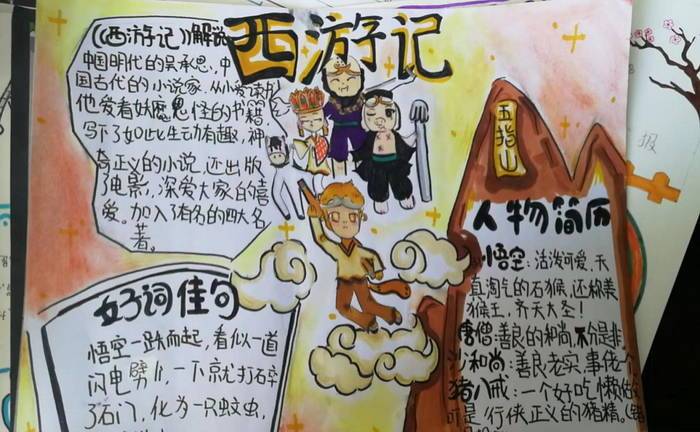 西游记
《西游记》解说
中国明代的吴承恩,中
国古代的小说家,从小爱读书
他爱看妖魔鬼怪的书籍
写下了如此生动有趣,神
奇正义的小说,还出版
了电影,深爱大家的喜
爱。加入了有名的四大名
著。
五指山
人物简历
悟空:活泼可爱,天
真淘气的石猴,还称美
猴王,齐天大圣!
唐僧:善良的和尚,不分是非
沙和尚:善良老实,事佬个
猪八戒:一个好吃懒做
可是行侠正义的猪精。
好词佳句
悟空一跌而起,看似一道
闪电劈,一下就打碎
了石门,化为一只蚊虫,
报